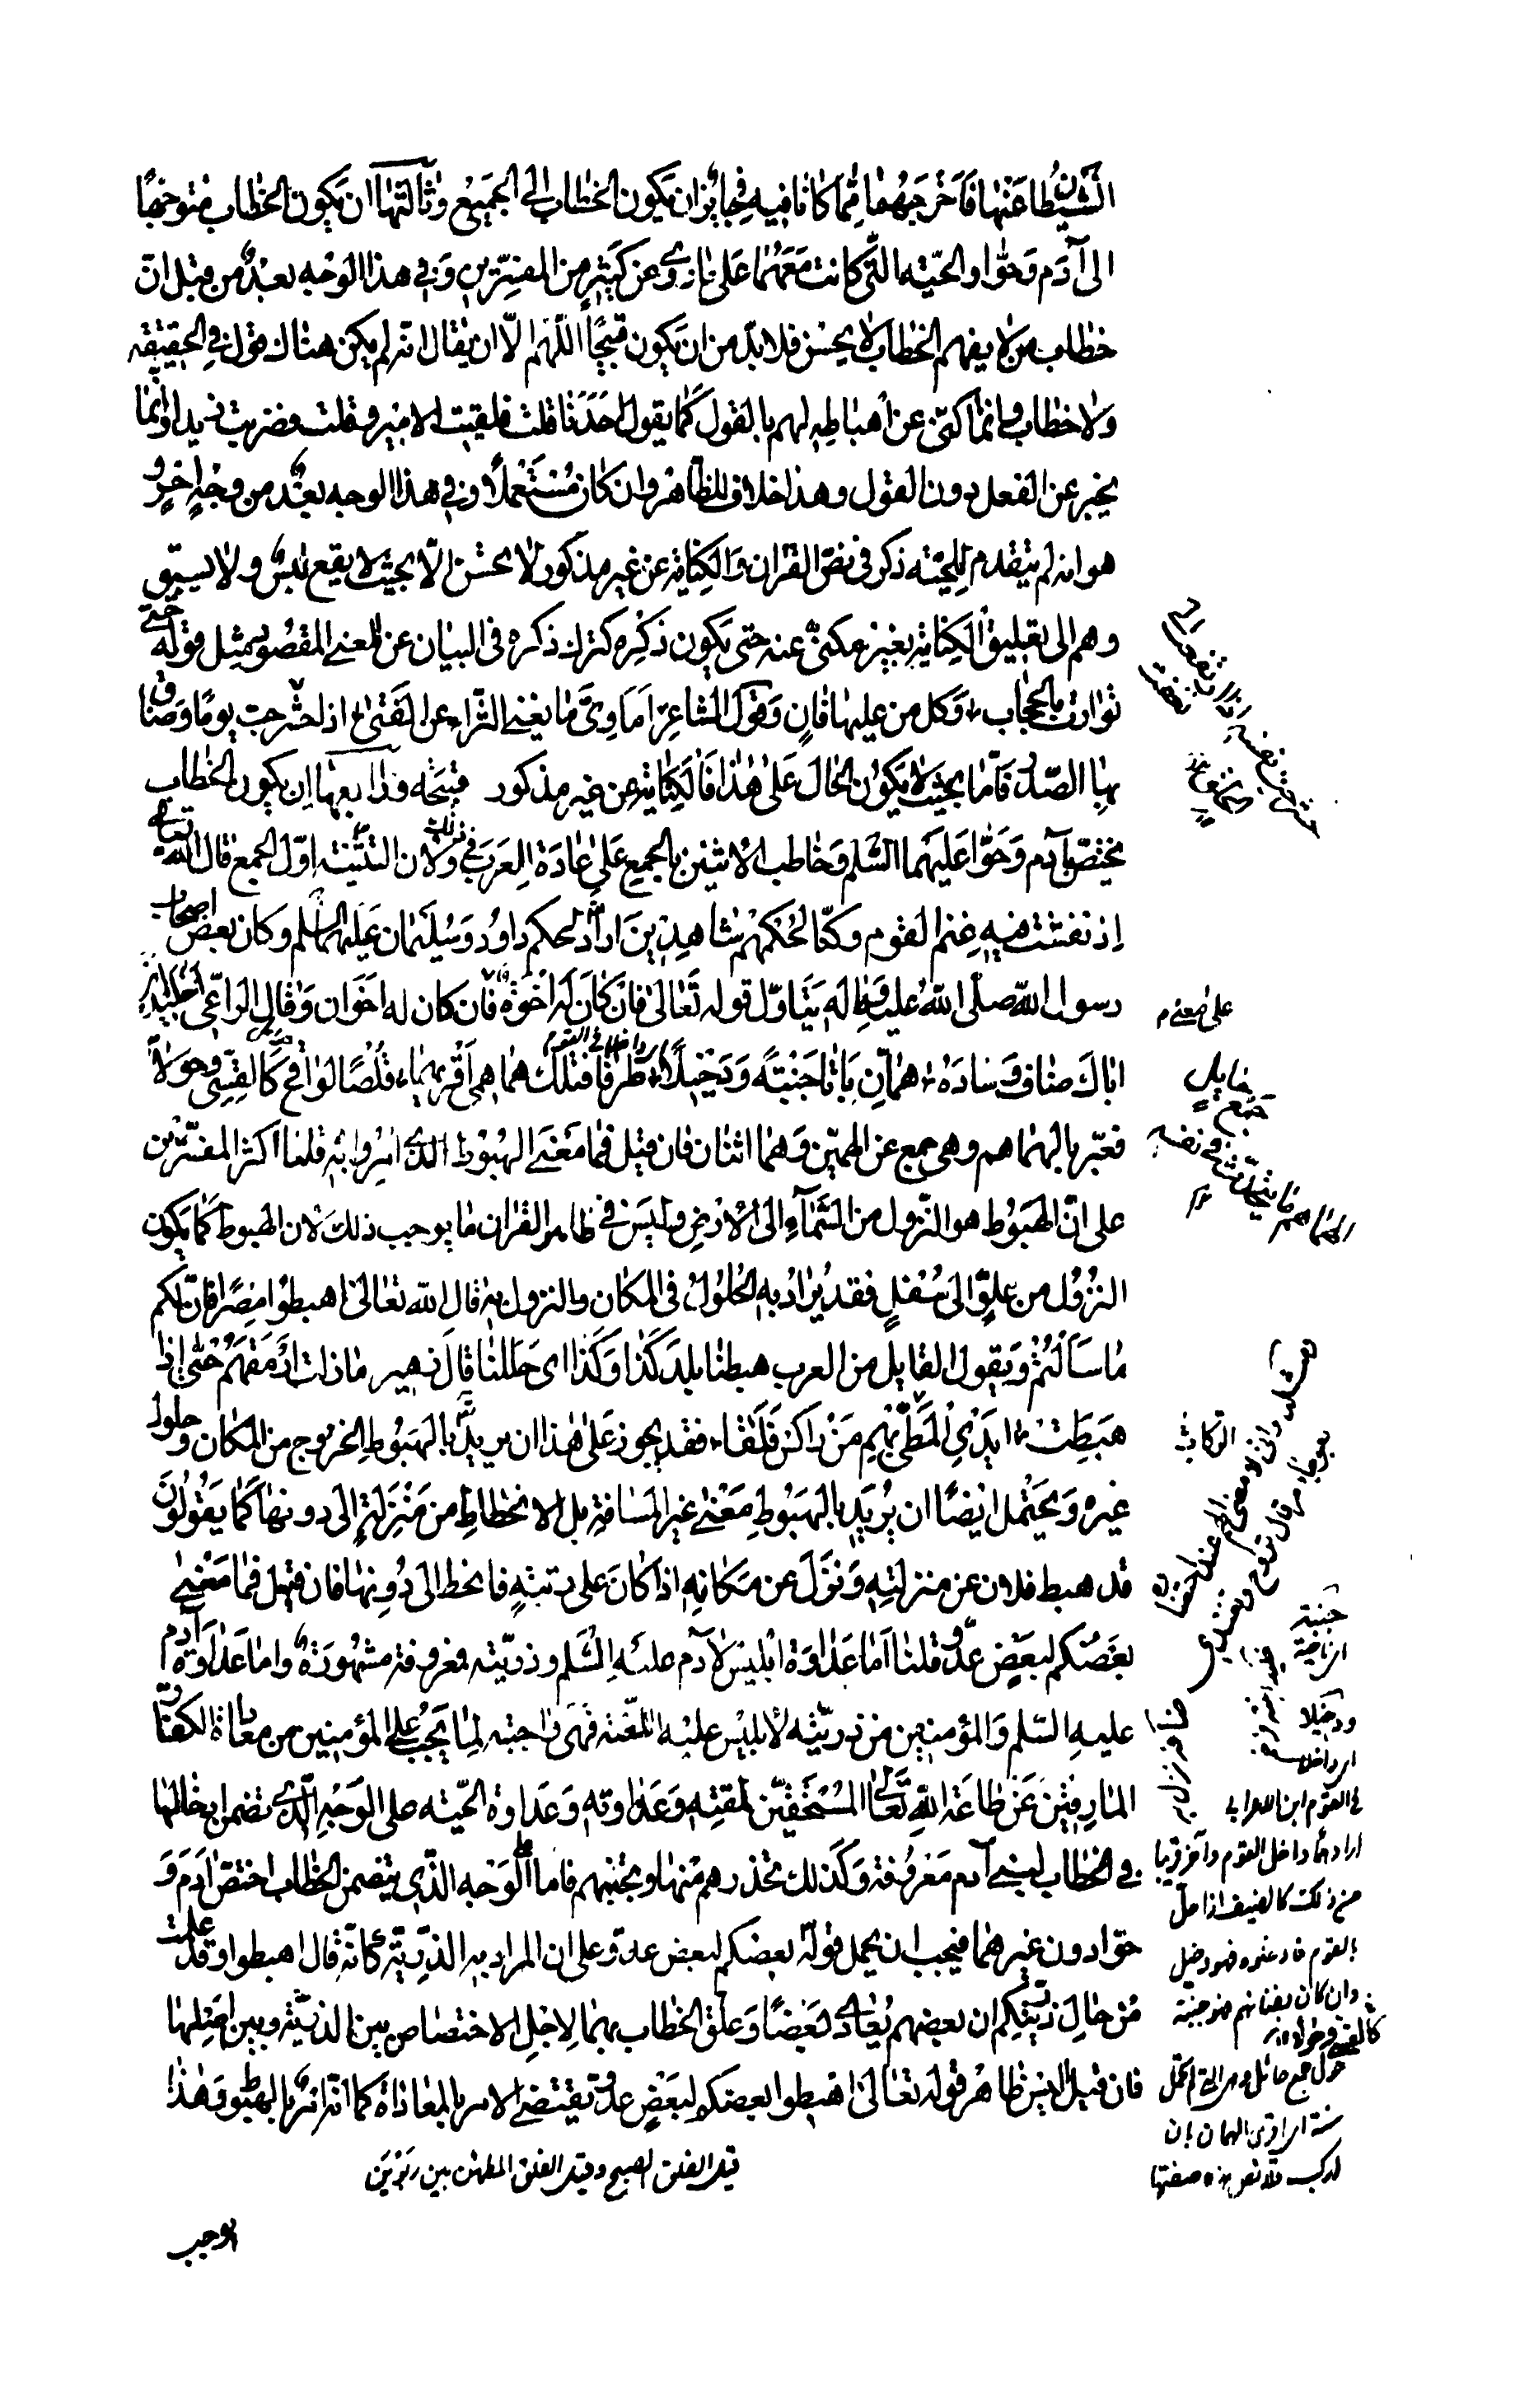 الشيطان عنها فاخرجهما مما كانا فيه فجايز ان يكون الخطاب الى الجميع وثالثها ان يكون الخطاب متوجها
الى آدم وحوا والحيّة التى كانت معهما على ما روى عن كثير من المفسّرين وفي هذا الوجه بعدٌ من قبل انّ
خطاب من لا يفهم الخطاب لا يحسن فلا بدّ من ان يكون قبيحًا اللّهمّ الّا ان يقال انه لم يكن هناك قول في الحقيقة
ولا خطاب وانما كنّى عن اهباطه لهم بالقول كما يقول احدنا قلت فلقيت الامير وقلت فضربت زيدا وانما
يخبر عن الفعل دون القول وهذا خلاف الظاهر وان كان مستعملًا وفي هذا الوجه بعدٌ من وجهٍ آخر و
هو انه لم يتقدم للحيّة ذكر في نصّ القرآن والكناية عن غير مذكور لا تحسن الّا بحيث لا يقع لبس ولا يسبق
وهم الى تعليق الكناية بغير مكنىّ عنه حتى يكون ذكره كترك ذكره فى البيان عن المعنى المقصود مثل قوله حتى
توارت بالحجاب وكل من عليها فان وقول الشاعر اماوىّ ما يغنى الثراء عن الفتى اذا حشرجت يومًا وضاق
بها الصّدر فامّا بحيث لا يكون الحال على هذا فالكناية عن غير مذكور قبيحة ورابعها ان يكون الخطاب
يختصّ بآدم وحوّا عليهما السّلم وخاطب الاثنين بالجمع على عادة العرب في ذلك ولان التثنية اوّل الجمع قال الله تعالى
اذ نفشت فيه غنم القوم وكنّا لحكمهم شاهدين اراد لحكم داود وسليمان عليهما السلم وكان بعض اصحاب
رسول الله صلّى الله عليه وآله يتاوّل قوله تعالى فان كان له اخوة فان كان له اخوان وقال الراعى اخليد ان
اباك ضاف وساده همّان باتا جنبة ودخيلًا طرقا فتلك هماهمى اقريهما قلصًا لواقح كالقسى وحولًا
فعبّر بالهماهم وهى جمع عن الهمّين وهما اثنان فان قيل فما معنى الهبوط الذى امروا به قلنا اكثر المفسّرين
على انّ الهبوط هو النزول من السّماء الى الارض وليس في ظاهر القرآن ما يوجب ذلك لان الهبوط كما يكون
النزول من علوّ الى سفل فقد يراد به الحلول فى المكان والنزول به قال الله تعالى اهبطوا مصرًا فانّ لكم
ما سألتم ويقول القايل من العرب هبطنا بلد كذا وكذا اى حللنا قال زهير ما زلت ارمقهم حتى اذا
هبطت ايدى المطىّ بهم من راكس فلقا فقد يجوز على هذا ان يريد بالهبوط الخروج من المكان وحلول
غيره ويحتمل ايضًا ان يريد بالهبوط معنى غير المسافة بل الانحطاط من منزلة الى دونها كما يقولون
قد هبط فلان عن منزلته ونزل عن مكانه اذا كان على رتبةٍ فانحط الى دونها فان قيل فما معنى
بعضكم لبعض عدوّ قلنا امّا عداوة ابليس لآدم عليه السّلم وذريّته فمعروفة مشهورة واما عداوة آدم
عليه السّلم والمؤمنين من ذريّته لابليس عليه اللّعنة فهى واجبة لما يجب على المؤمنين من معاداة الكفار
المارقين عن طاعة الله تعالى المستحقّين لمقته وعداوته وعداوة الحيّة على الوجه الّذى تضمن ادخالها
في الخطاب لبنى آدم معروفة وكذلك تحذرهم منها وتجنبهم فاما الوجه الّذي يتضمن الخطاب اختصّ آدم و
حوّا دون غيرهما فيجب ان يحمل قوله بعضكم لبعض عدوّ على ان المراد به الذّريّة كانّه قال اهبطوا وقد علمت
من حال ذريّتكم ان بعضهم يعادى بعضًا وعلّق الخطاب بهما لاجل الاختصاص بين الذريّة وبين اصلها
فان قيل اليس ظاهر قوله تعالى اهبطوا بعضكم لبعض عدوّ يقتضى الامر بالمعاداة كما انّه امر بالهبوط وهذا
يوجب
قيل الفلق الصبح وقيل الفلق المطمئن بين ربوتين
على معنى
الراكب
جنبة
اى ناحية
ودخيلا
اى داخلا
فى القوم ابن الاعرابي
اراد همًّا داخل القوم وآخر قريبا
من ذلك كالضيف اذا حلّ
بالقوم فادخلوه فهو دخيل
وان كان بفنائهم فهو جنبة
كالقسى وحولا
حول جمع حائل وهى التى لم تحمل
سنة